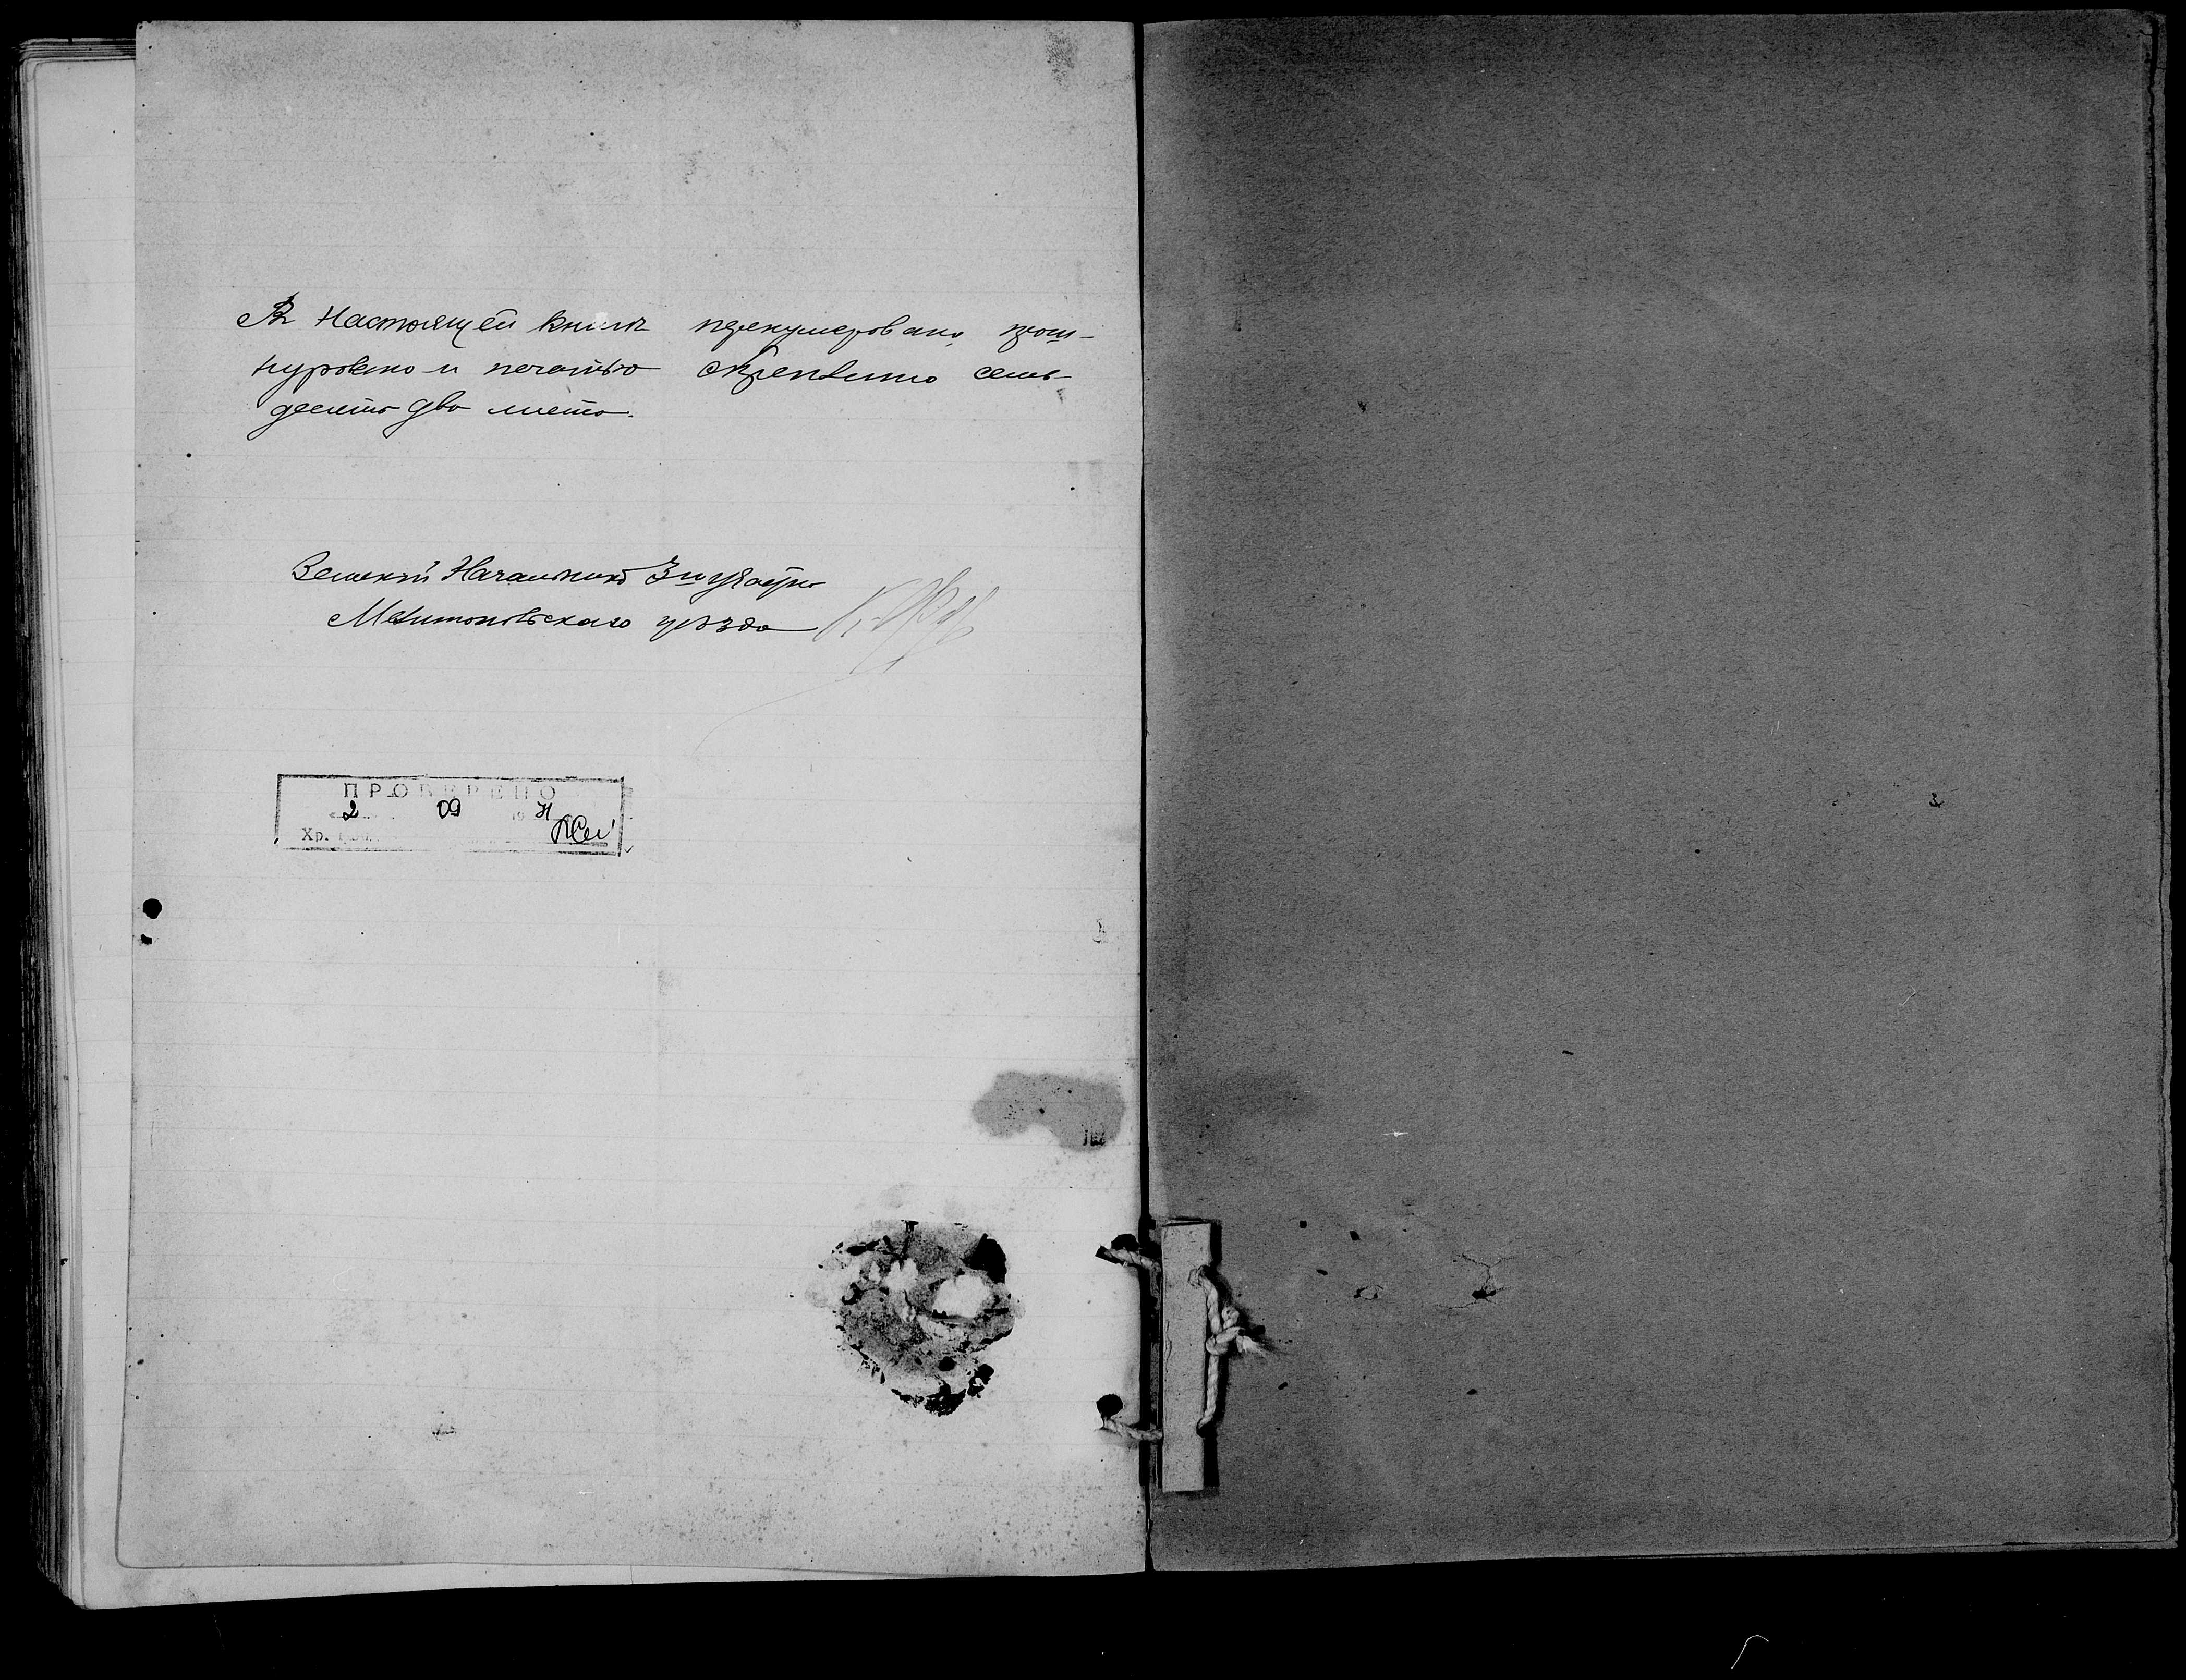 Въ настоящей книгѣ перенумеровано, прош-
нуровано и печатью скреплено семь-
десятъ два листа.
Земскій Начальникъ 3го участка
Мелитопольскаго уѣзда
ПРОВЕРЕНО
2 09
Хр.